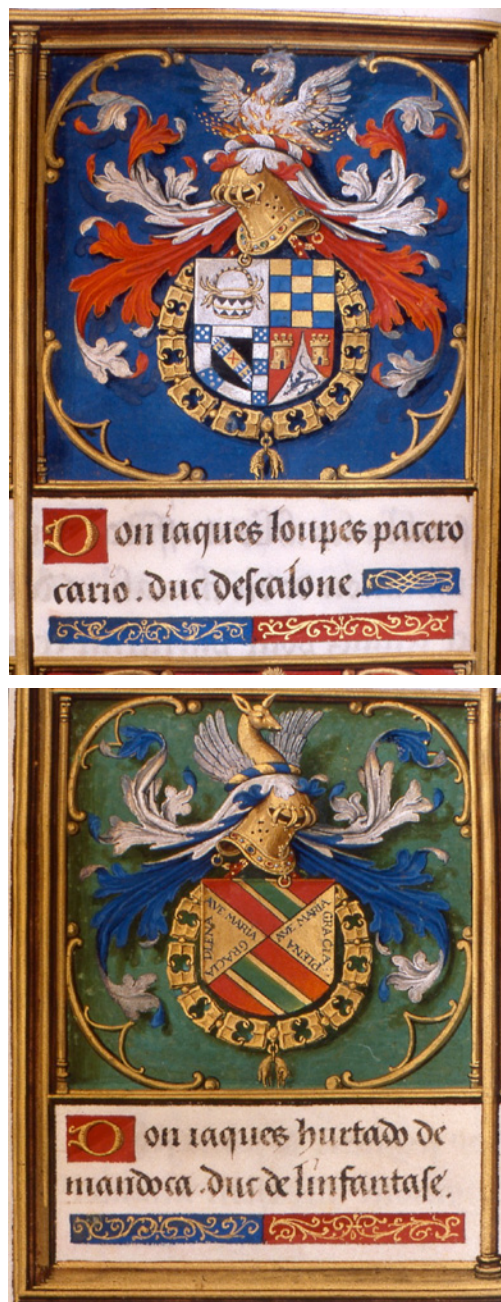 Don iaques loupes pacero
cario. duc descalone.
AVE MARIA
GRACIA PLENA
AVE MARIA
GRACIA PLENA
Don iaques hurtado de
mandoca. duc de linfantase.